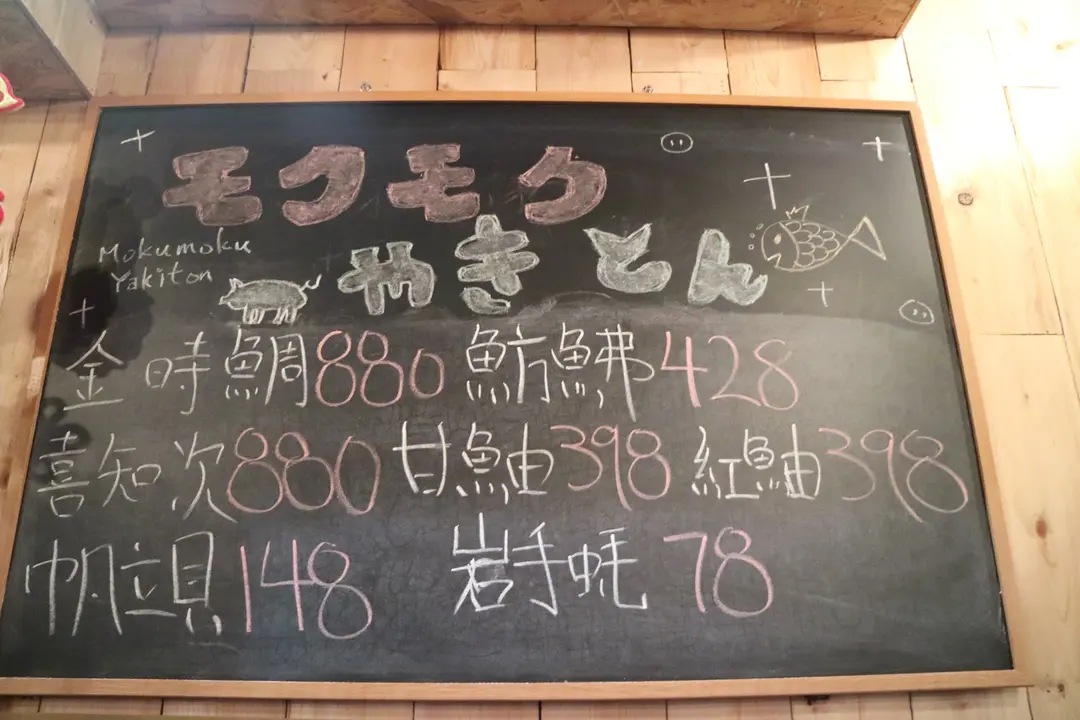 モクモク
Mokumoku
Yakiton
やきとん
金時鯛880 魴鮄428
喜知次880 甘鮋398 紅鮋398
帆立貝148 岩手蚝 78